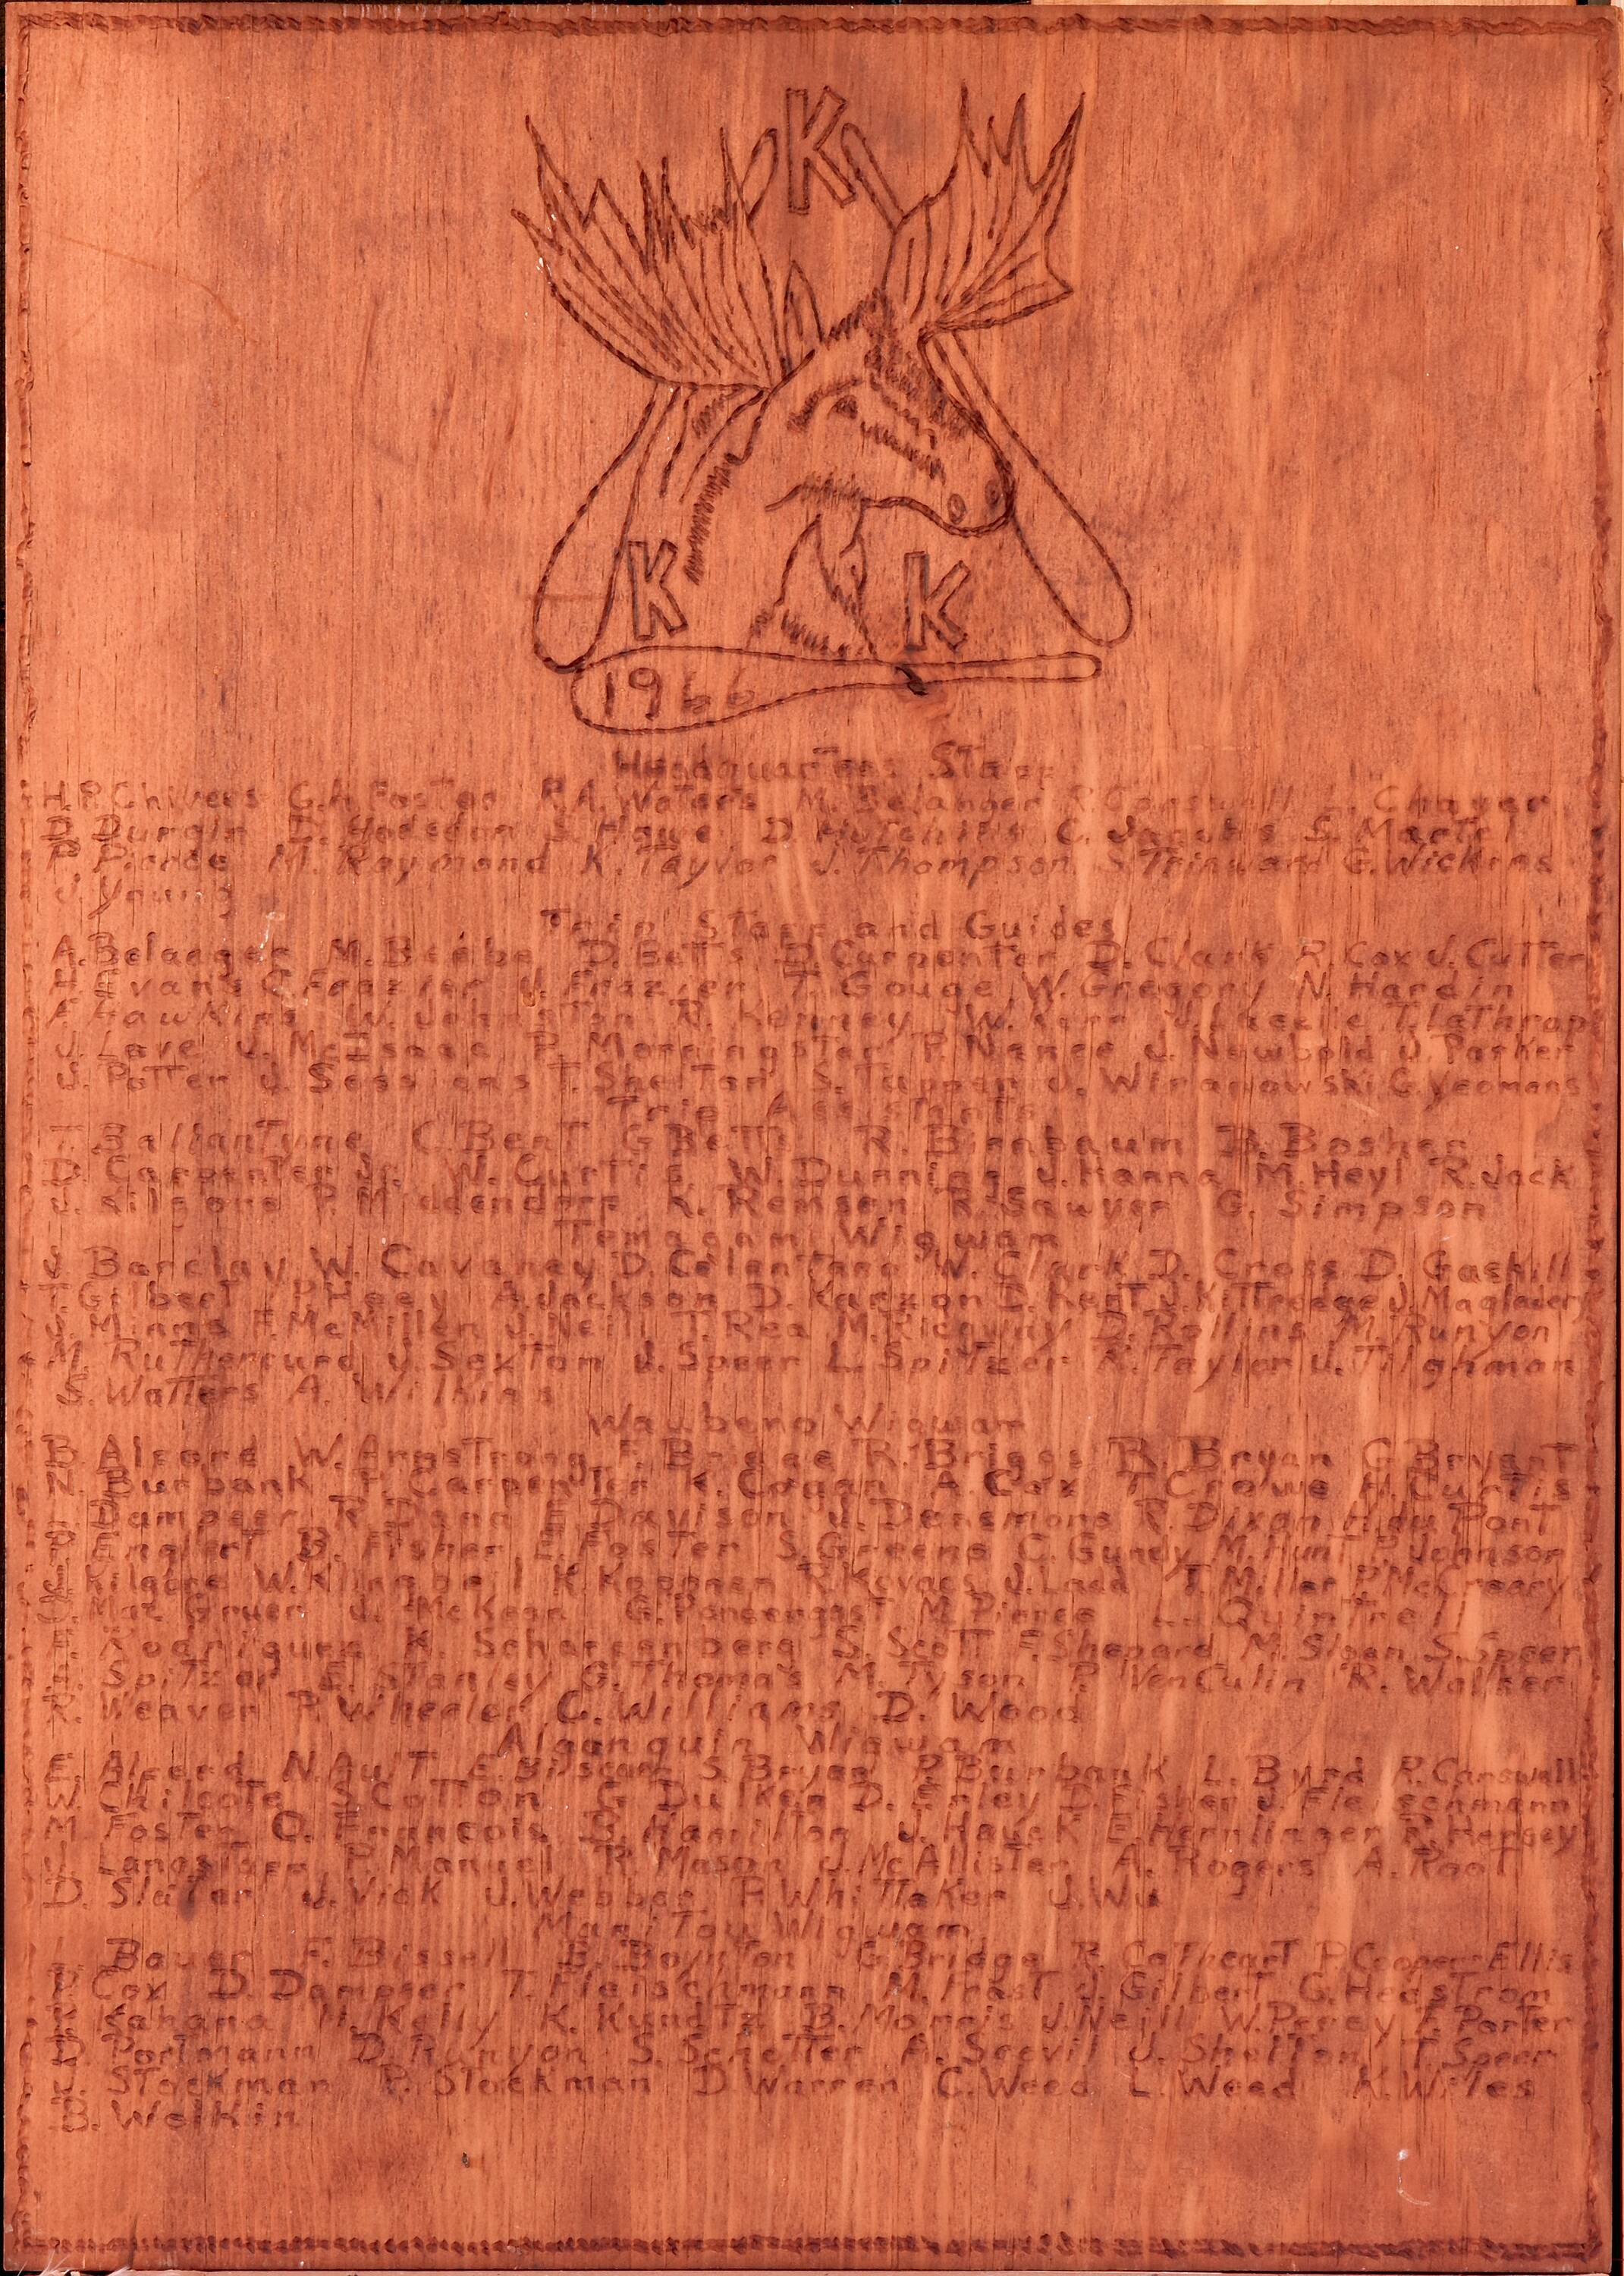 K
K K
1966
Headquarters Staff
H.P. Chivers G.A. Foster R.A. Waters M. Belanger R. Carswell L. Chaver
D. Durgin D. Hodsdon S. Howe D. Hutchins C. Jacobs S. Martel
P. Pierce M. Raymond K. Taylor J. Thompson S. Trinward G. Wickens
J. Young
Trip Staff and Guides
A. Belanger M. Beebe D. Betts D. Carpenter D. Clark R. Cox J. Cutter
H. Evans C. Frazier J. Frazier T. Gouge W. Gregory N. Hardin
A. Hawkins W. Johnston R. Kenney W. Kerr J. T. LaThrop
J. Love J. McIsaac P. Morningstar P. Nance J. Newbold J. Parker
J. Potter J. Sessions T. Shelton S. Tuppan J. Winanowski G. Yeomans
Trip Assistants
Ballantyne C. Bent G. Betts R. Birnbaum B. Bosher
D. Carpenter Jr. W. Curtis W. Dunning J. Hanna M. Heyl R. Jack
J. Kilgore P. Middendorf K. Remsen R. Sawyer G. Simpson
Temagami Wigwam
Barclay W. Cavaney D. Colantano W. Clark D. Cross D. Gaskill
Gilbert P. Hoey A. Jackson D. Karzon D. Kent J. Kittredge J. Maglathery
Minno F. McMillen J. Neill T. Rea M. Ricquiny D. Rollins M. Runyon
M. Rutherfurd J. Sexton J. Speer L. Spitzer R. Taylor J. Tilghman
S. Watters A. Wilkins
Waubeno Wigwam
B. Alford W. Armstrong F. Bridge R. Briggs R. Bryan G. Bryant
N. Burbank F. Carpenter K. Cogan A. Cox T. Crowe H. Curtis
Dampeer R. Dana E. Davison J. Densmore R. Dixon H. duPont
Englert B. Fisher E. Foster S. Greene C. Gundy M. Hunt P. Johnson
Kilgore W. Klingbeil K. Kopanen R. Kovacs J. Ladd T. Miller P. McCreary
MacGruer J. McKean G. Pendergast M. Pierce L. Quintrell
Rodriguez K. Scharfenberg S. Scott F. Shepard M. Sloan S. Speer
Spitzer E. Stanley G. Thomas M. Tyson P. VenCulin R. Walker
R. Weaver P. Wheeler C. Williams D. Wood
Algonquin Wigwam
E. Alford N. Ault E. Biscan S. Bryan P. Burbank L. Byrd R. Carswell
W. Chilcote S. Cotton G. Dulken D. Enley D. Fisher J. Fleischmann
M. Foster O. Francois B. Hamilton J. Hauck E. Herrlinger R. Hersey
J. Langstaff P. Manuel R. Mason J. McAllister A. Rogers A. Root
D. Slater J. Vick J. Webber P. Whittaker J. Wu
Manitou Wigwam
Bauer F. Bissell B. Boynton G. Bridge R. Cathcart P. Cooper-Ellis
Cox D. Dampeer T. Fleischmann M. Frost J. Gilbert G. Hedstrom
Kahana H. Kelly K. Kundtz B. Morris J. Neill W. Peney F. Porter
Portmann D. Runyon S. Schetter A. Scovil J. Shelton T. Speer
J. Stockman P. Stockman D. Warren C. Weed L. Weed K. Wiles
B. Wolkin